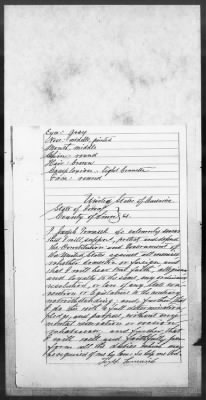 Eyes: gray
Nose: middle, pointed
Mouth: middle
Chin: round
Hair: brown
Complexion: light
Face: round
United States of America
State of
County of ss.
I, Joseph do solemnly swear
that I will support, protect, and defend
the Constitution and Government of
the United States against all enemies,
whether domestic or foreign, and
that I will bear true faith, allegiance
and loyalty to the same, any ordinance,
resolution, or law of any State con-
vention or legislature to the contrary
notwithstanding; and further, that
I do this with a full determination,
pledge, and purpose, without any
mental reservation or evasion
whatsoever; and further, that
I will well and faithfully per-
form all the duties which may be
required of me by law: So help me God.